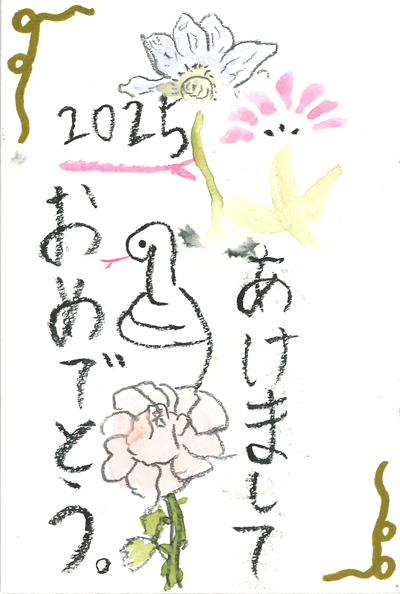 2025
あけまして
おめでとう。